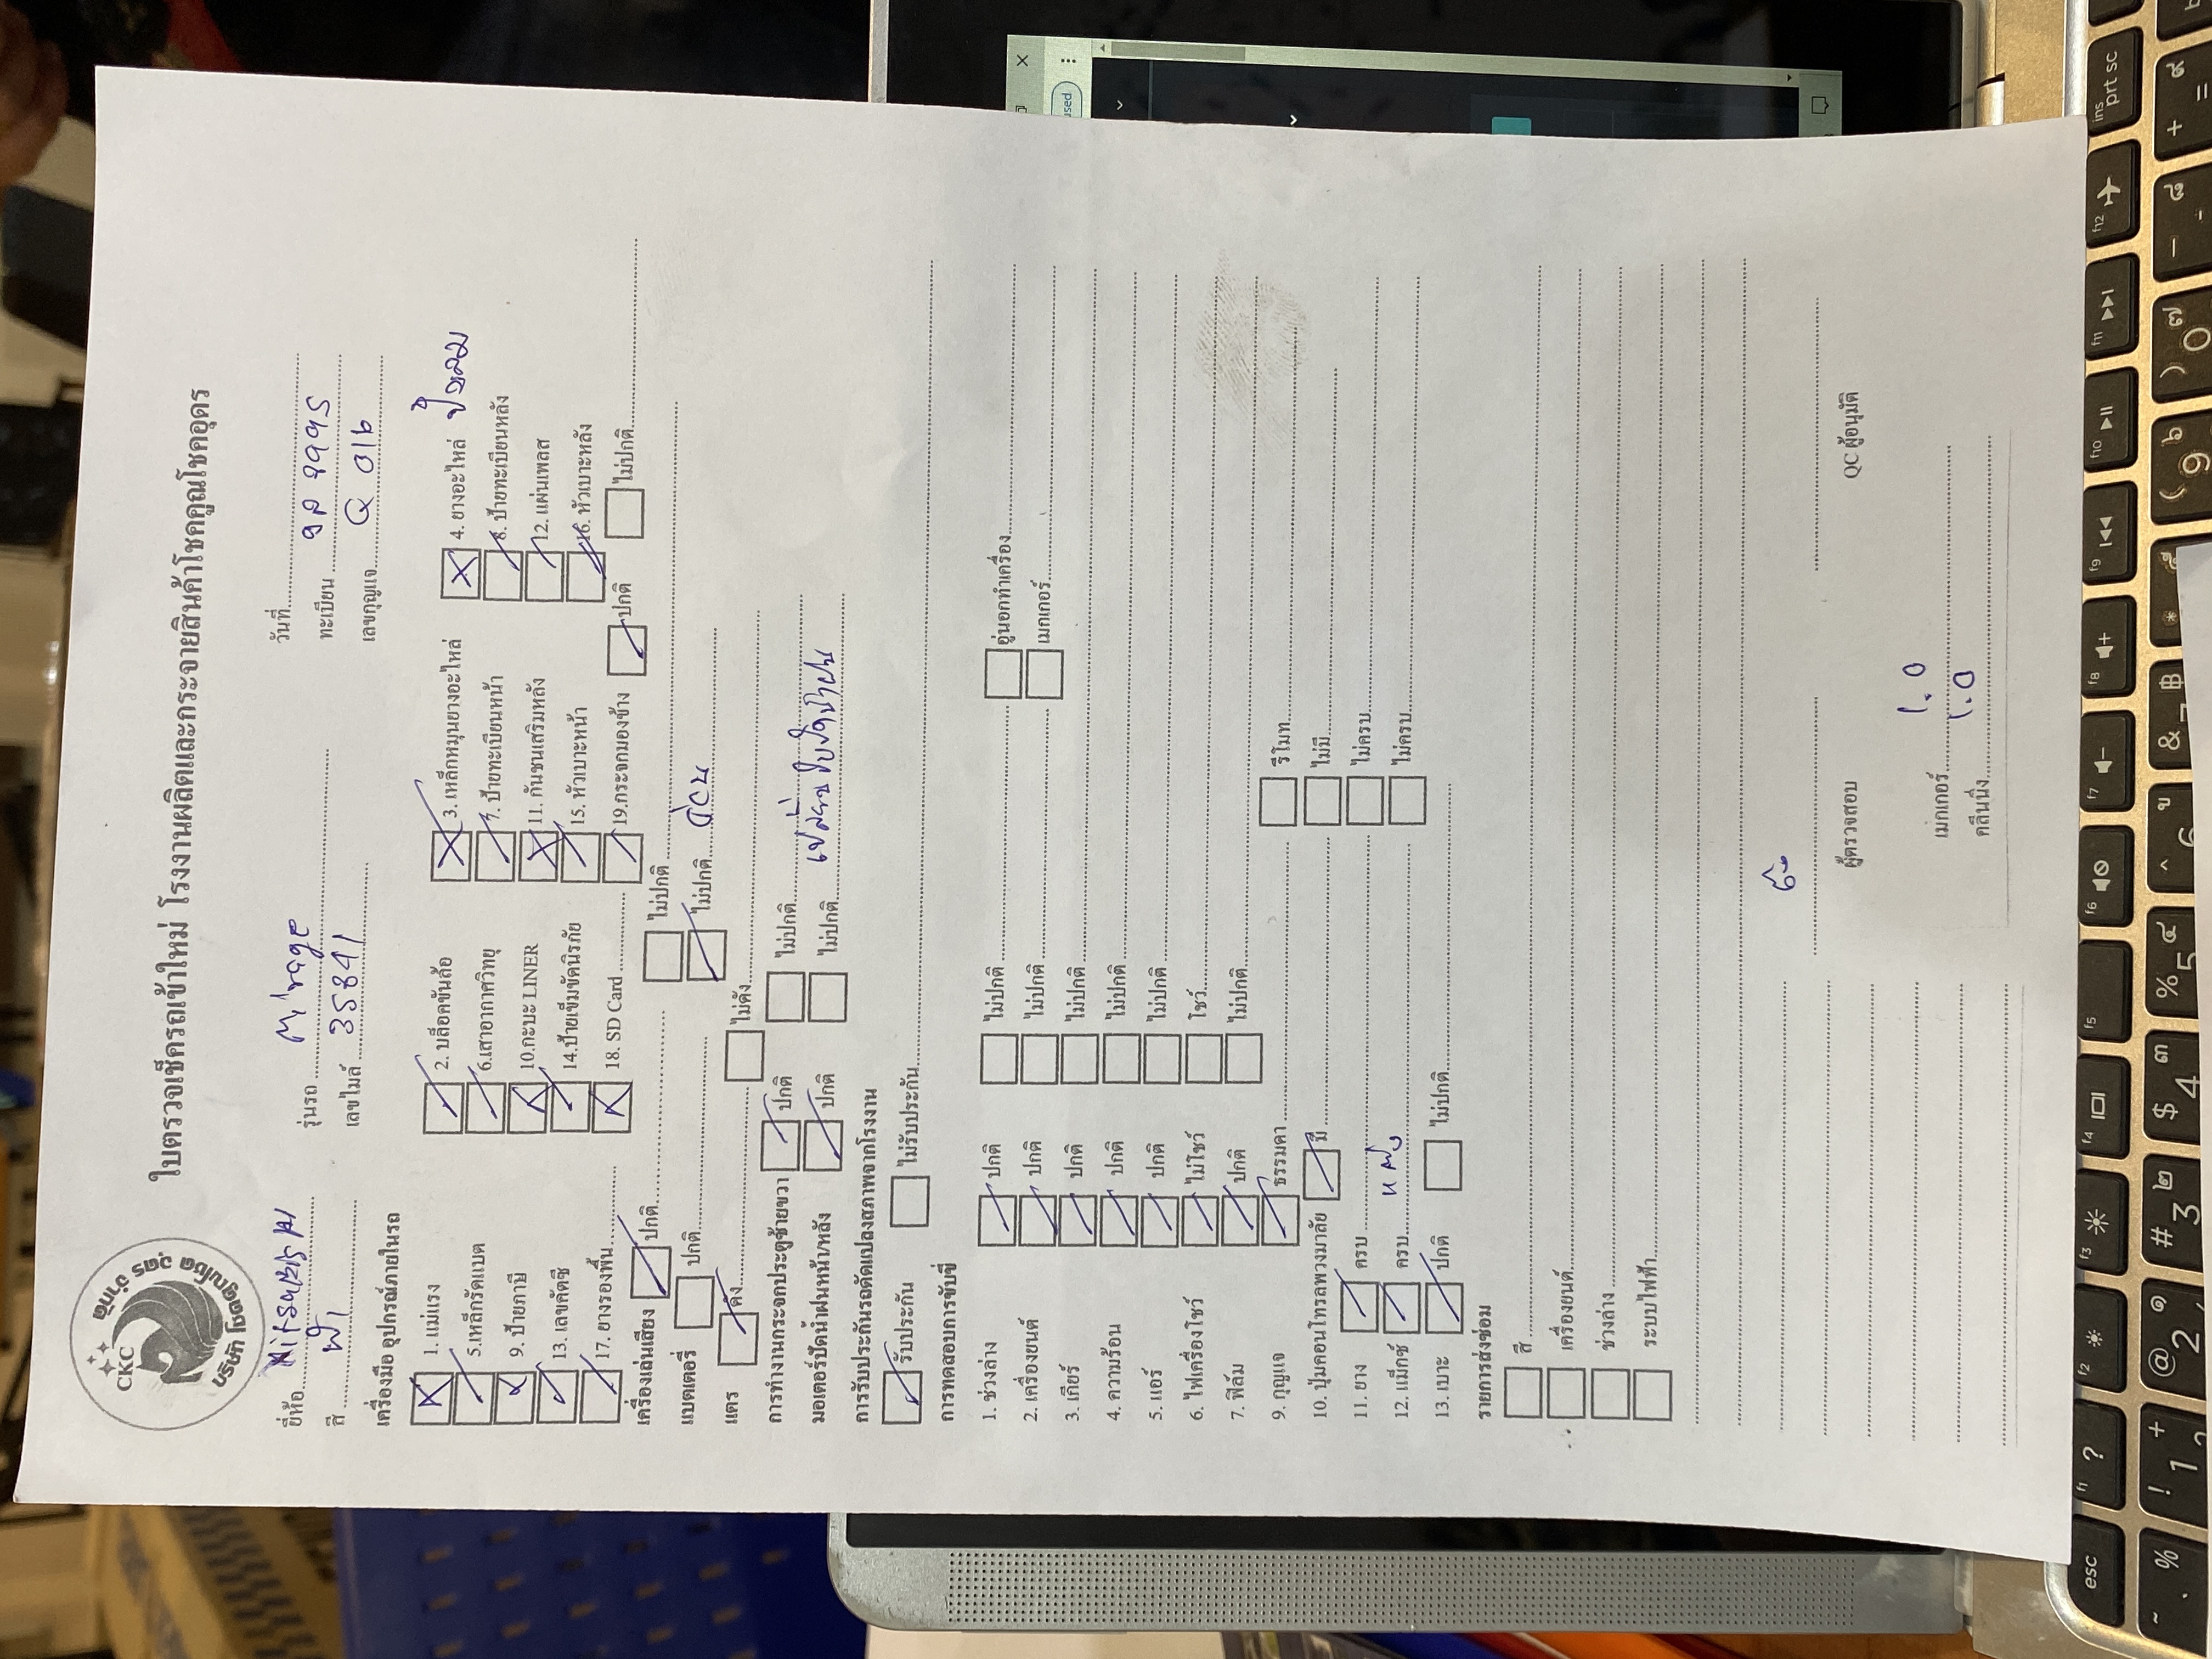 CKC
บริษัท โชคคูณโชค อุดร จำกัด
ใบตรวจเช็ครถเข้าใหม่ โรงงานผลิตและกระจายสินค้าโชคคูณโชคอุดร
ยี่ห้อ รุ่นรถ Mirage วันที่
สี ฟ้า เลขไมล์ 35841 ทะเบียน
เลขกุญแจ Q 016
เครื่องมือ อุปกรณ์ภายในรถ
1. แม่แรง 2. บล็อคขันล้อ 3. เหล็กหมุนยางอะไหล่ 4. ยางอะไหล่ ปั๊มลม
5.เหล็กรัดแบต 6.เสาอากาศวิทยุ 7. ป้ายทะเบียนหน้า 8. ป้ายทะเบียนหลัง
9. ป้ายภาษี 10.กะบะ LINER 11. กันชนเสริมหลัง 12. แผ่นเพลส
13. เลขคัตซี 14.ป้ายเข็มขัดนิรภัย 15. หัวเบาะหน้า 16. หัวเบาะหลัง
17. ยางรองพื้น 18. SD Card 19.กระจกมองข้าง ปกติ ไม่ปกติ
เครื่องเล่นเสียง ปกติ ไม่ปกติ
แบตเตอรี่ ปกติ ไม่ปกติ
แตร ดัง ไม่ดัง
การทำงานกระจกประตูซ้ายขวา ปกติ ไม่ปกติ
มอเตอร์ปัดน้ำฝนหน้า/หลัง ปกติ ไม่ปกติ เปลี่ยนใบปัดน้ำฝน
การรับประกันรถดัดแปลงสภาพจากโรงงาน
รับประกัน ไม่รับประกัน
การทดสอบการขับขี่
1. ช่วงล่าง ปกติ ไม่ปกติ อู่นอกทำเครื่อง
2. เครื่องยนต์ ปกติ ไม่ปกติ เมกเกอร์
3. เกียร์ ปกติ ไม่ปกติ
4. ความร้อน ปกติ ไม่ปกติ
5. แอร์ ปกติ ไม่ปกติ
6. ไฟเครื่องโชว์ ไม่โชว์ โชว์
7. ฟิล์ม ปกติ ไม่ปกติ
9. กุญแจ ธรรมดา รีโมท
10. ปุ่มคอนโทรลพวงมาลัย มี ไม่มี
11. ยาง ครบ ไม่ครบ
12. แม็กซ์ ครบ ไม่ครบ
13. เบาะ ปกติ ไม่ปกติ
รายการส่งซ่อม
สี
เครื่องยนต์
ช่วงล่าง
ระบบไฟฟ้า
ผู้ตรวจสอบ QC ผู้อนุมัติ
เมกเกอร์ 1.0
คลีนนิ่ง 1.0
used
esc
f1 ?
f2
f3
f4
f5
f6
f7
f8
f9
f10
f11
f12
ins
prt sc
~ ` %
! 1 +
@ 2 ๑
# 3 ๒
$ 4 ๓
% 5 ๔
^ 6
& 7 ฿
*
( 9
) 0 ๗
_ - ๘
+ = ๙